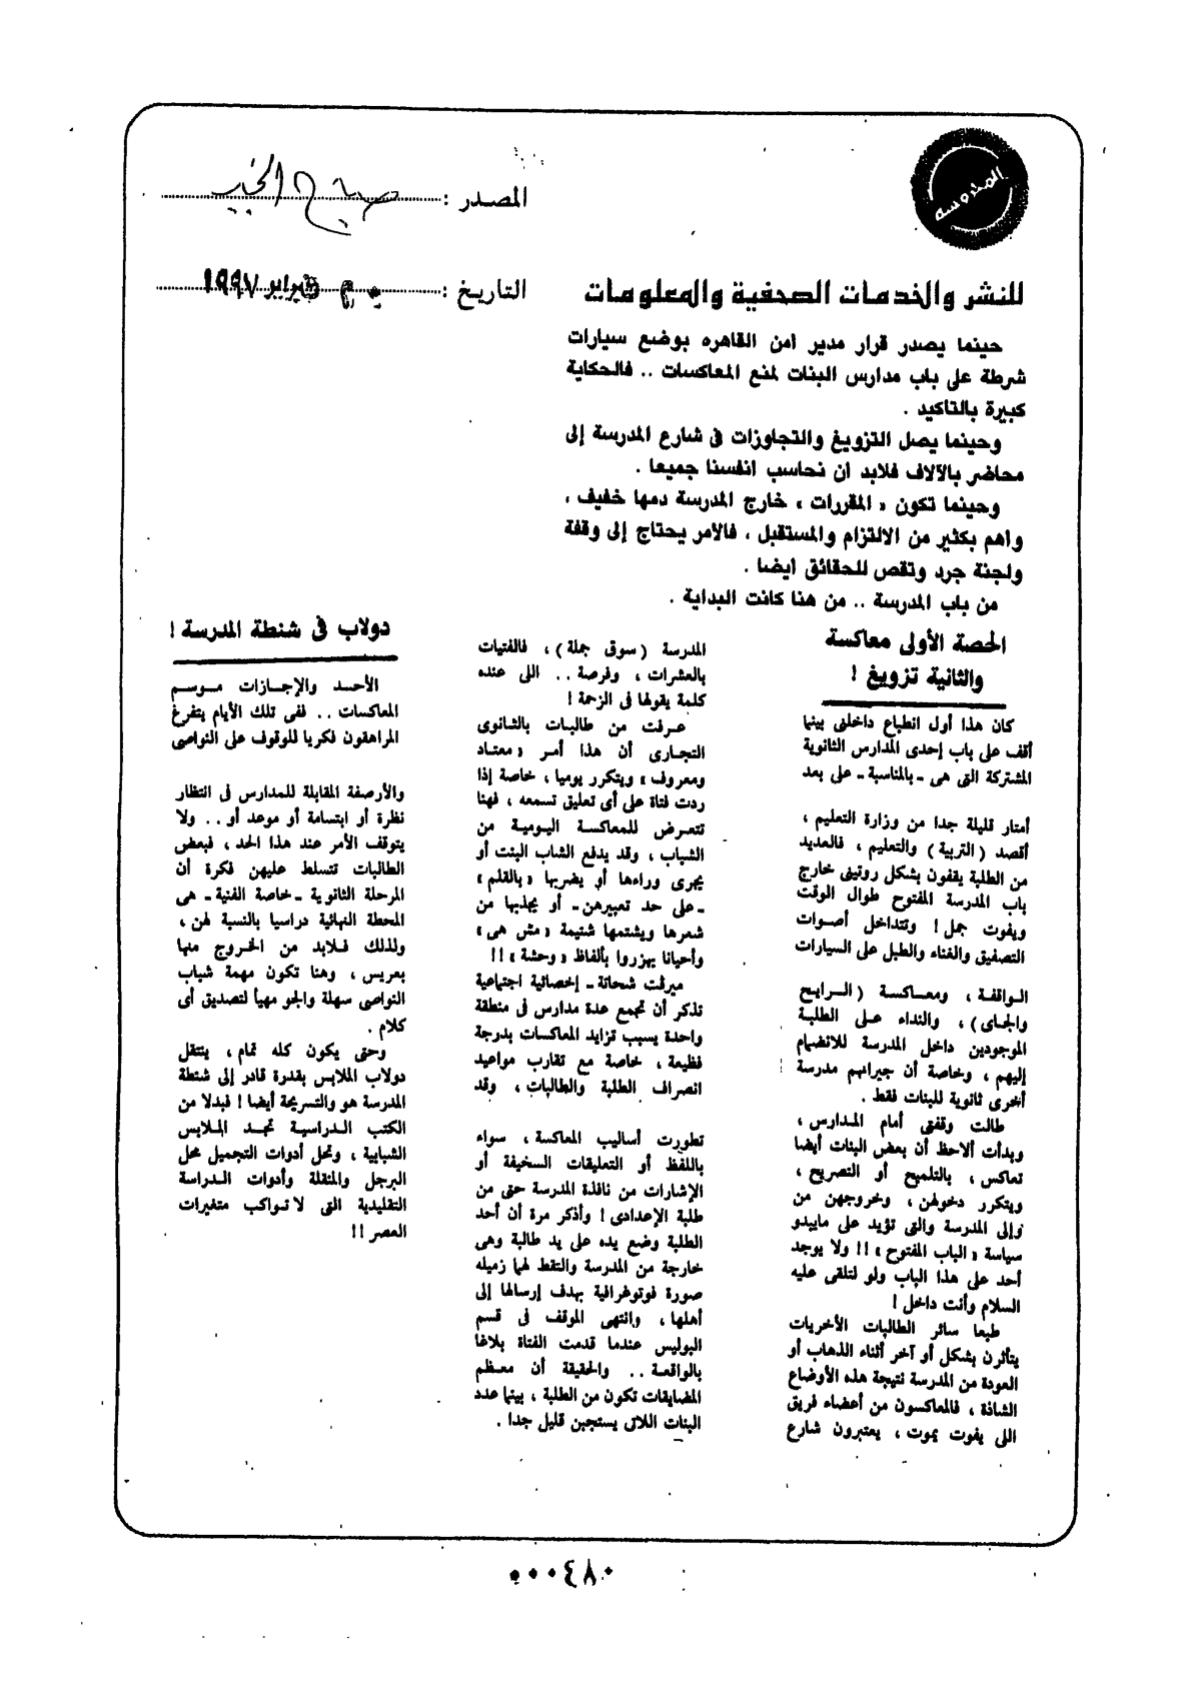 المحروسة
المصدر : صباح الخير
للنشر والخدمات الصحفية والمعلومات
التاريخ : فبراير ١٩٩٧
حينما يصدر قرار مدير امن القاهره بوضع سيارات
شرطة على باب مدارس البنات لمنع المعاكسات .. فالحكاية
كبيرة بالتاكيد .
وحينما يصل التزويغ والتجاوزات فى شارع المدرسة إلى
محاضر بالآلاف فلابد ان نحاسب انفسنا جميعا .
وحينما تكون « المقررات » خارج المدرسة دمها خفيف ،
واهم بكثير من الالتزام والمستقبل ، فالامر يحتاج إلى وقفة
ولجنة جرد وتقص للحقائق ايضا .
من باب المدرسة .. من هنا كانت البداية .
الحصة الأولى معاكسة
والثانية تزويغ !
كان هذا أول انطباع داخلنى بينما
أقف على باب إحدى المدارس الثانوية
المشتركة التى هى ـ بالمناسبة ـ على بعد
أمتار قليلة جدا من وزارة التعليم ،
أقصد ( التربية ) والتعليم ، فالعديد
من الطلبة يقفون بشكل روتينى خارج
باب المدرسة المفتوح طوال الوقت
ويفوت جمل ! وتتداخل أصوات
التصفيق والغناء والطبل على السيارات
الواقفة ، ومعاكسة ( الرايح
والجاى ) ، والنداء على الطلبة
الموجودين داخل المدرسة للانضمام
إليهم ، وخاصة أن جيرانهم مدرسة
أخرى ثانوية للبنات فقط .
طالت وقفتى أمام المدارس ،
وبدأت ألاحظ أن بعض البنات أيضا
تعاكس ، بالتلميح أو التصريح ،
ويتكرر دخولهن ، وخروجهن من
وإلى المدرسة والتى تؤيد على مايبدو
سياسة « الباب المفتوح » !! ولا يوجد
أحد على هذا الباب ولو لتلقى عليه
السلام وأنت داخل !
طبعا سائر الطالبات الأخريات
يتأثرن بشكل أو آخر أثناء الذهاب أو
العودة من المدرسة نتيجة هذه الأوضاع
الشاذة ، فالمعاكسون من أعضاء فريق
اللى يفوت يموت ، يعتبرون شارع
المدرسة ( سوق جملة ) ، فالفتيات
بالعشرات ، وفرصة .. اللى عنده
كلمة يقولها فى الزحمة !
عرفت من طالبات بالثانوى
التجارى أن هذا أمر « معتاد
ومعروف » ويتكرر يوميا ، خاصة إذا
ردت فتاة على أى تعليق تسمعه ، فهنا
تتعرض للمعاكسة اليومية من
الشباب ، وقد يدفع الشاب البنت أو
يجرى وراءها أو يضربها « بالقلم »
ـ على حد تعبيرهن ـ أو يجذبها من
شعرها ويشتمها شتيمة « مش هى »
وأحيانا يهزروا بألفاظ « وحشة » !!
ميرفت شحاتة ـ إخصائية اجتماعية
تذكر أن تجمع عدة مدارس فى منطقة
واحدة يسبب تزايد المعاكسات بدرجة
فظيعة ، خاصة مع تقارب مواعيد
انصراف الطلبة والطالبات ، وقد
تطورت أساليب المعاكسة ، سواء
باللفظ أو التعليقات السخيفة أو
الإشارات من نافذة المدرسة حتى من
طلبة الإعدادى ! وأذكر مرة أن أحد
الطلبة وضع يده على يد طالبة وهى
خارجة من المدرسة والتقط لهما زميله
صورة فوتوغرافية بهدف إرسالها إلى
أهلها ، وانتهى الموقف فى قسم
البوليس عندما قدمت الفتاة بلاغا
بالواقعة .. والحقيقة أن معظم
المضايقات تكون من الطلبة ، بينما عدد
البنات اللاتى يستجبن قليل جدا .
دولاب فى شنطة المدرسة !
الأحد والإجازات موسم
المعاكسات .. ففى تلك الأيام يتفرغ
المراهقون فكريا للوقوف على النواصى
والأرصفة المقابلة للمدارس فى انتظار
نظرة أو ابتسامة أو موعد أو .. ولا
يتوقف الأمر عند هذا الحد ، فبعض
الطالبات تتسلط عليهن فكرة أن
المرحلة الثانوية ـ خاصة الفنية ـ هى
المحطة النهائية دراسيا بالنسبة لهن ،
ولذلك فلابد من الخروج منها
بعريس ، وهنا تكون مهمة شباب
النواصى سهلة والجو مهيأ لتصديق أى
كلام .
وحتى يكون كله تمام ، ينتقل
دولاب الملابس بقدرة قادر إلى شنطة
المدرسة هو والتسريحة أيضا ! فبدلا من
الكتب الدراسية تجد الملابس
الشبابية ، وتحل أدوات التجميل محل
البرجل والمنقلة وأدوات الدراسة
التقليدية التى لا تواكب متغيرات
العصر !!
٠٠٠٤٨٠